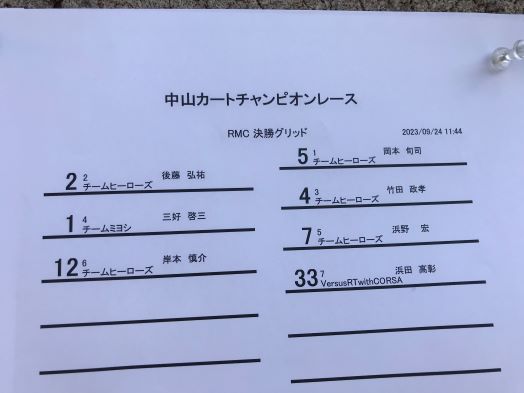 中山カートチャンピオンレース
RMC 決勝グリッド
2023/09/24 11:44
5 1 岡本 旬司
チームヒーローズ
2 2 後藤 弘祐
チームヒーローズ
4 3 竹田 政孝
チームヒーローズ
1 4 三好 啓三
チームミヨシ
7 5 浜野 宏
チームヒーローズ
12 6 岸本 慎介
チームヒーローズ
33 7 浜田 高彰
VersusRTwithCORSA